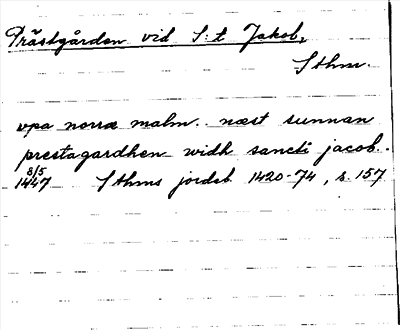 Prästgården vid S:t Jakob,
Sthm.
vpa norra malm.. næst sunnan
prestagardhen widh sancti jacob..
8/5
1447 Sthms jordeb 1420-74, s. 157